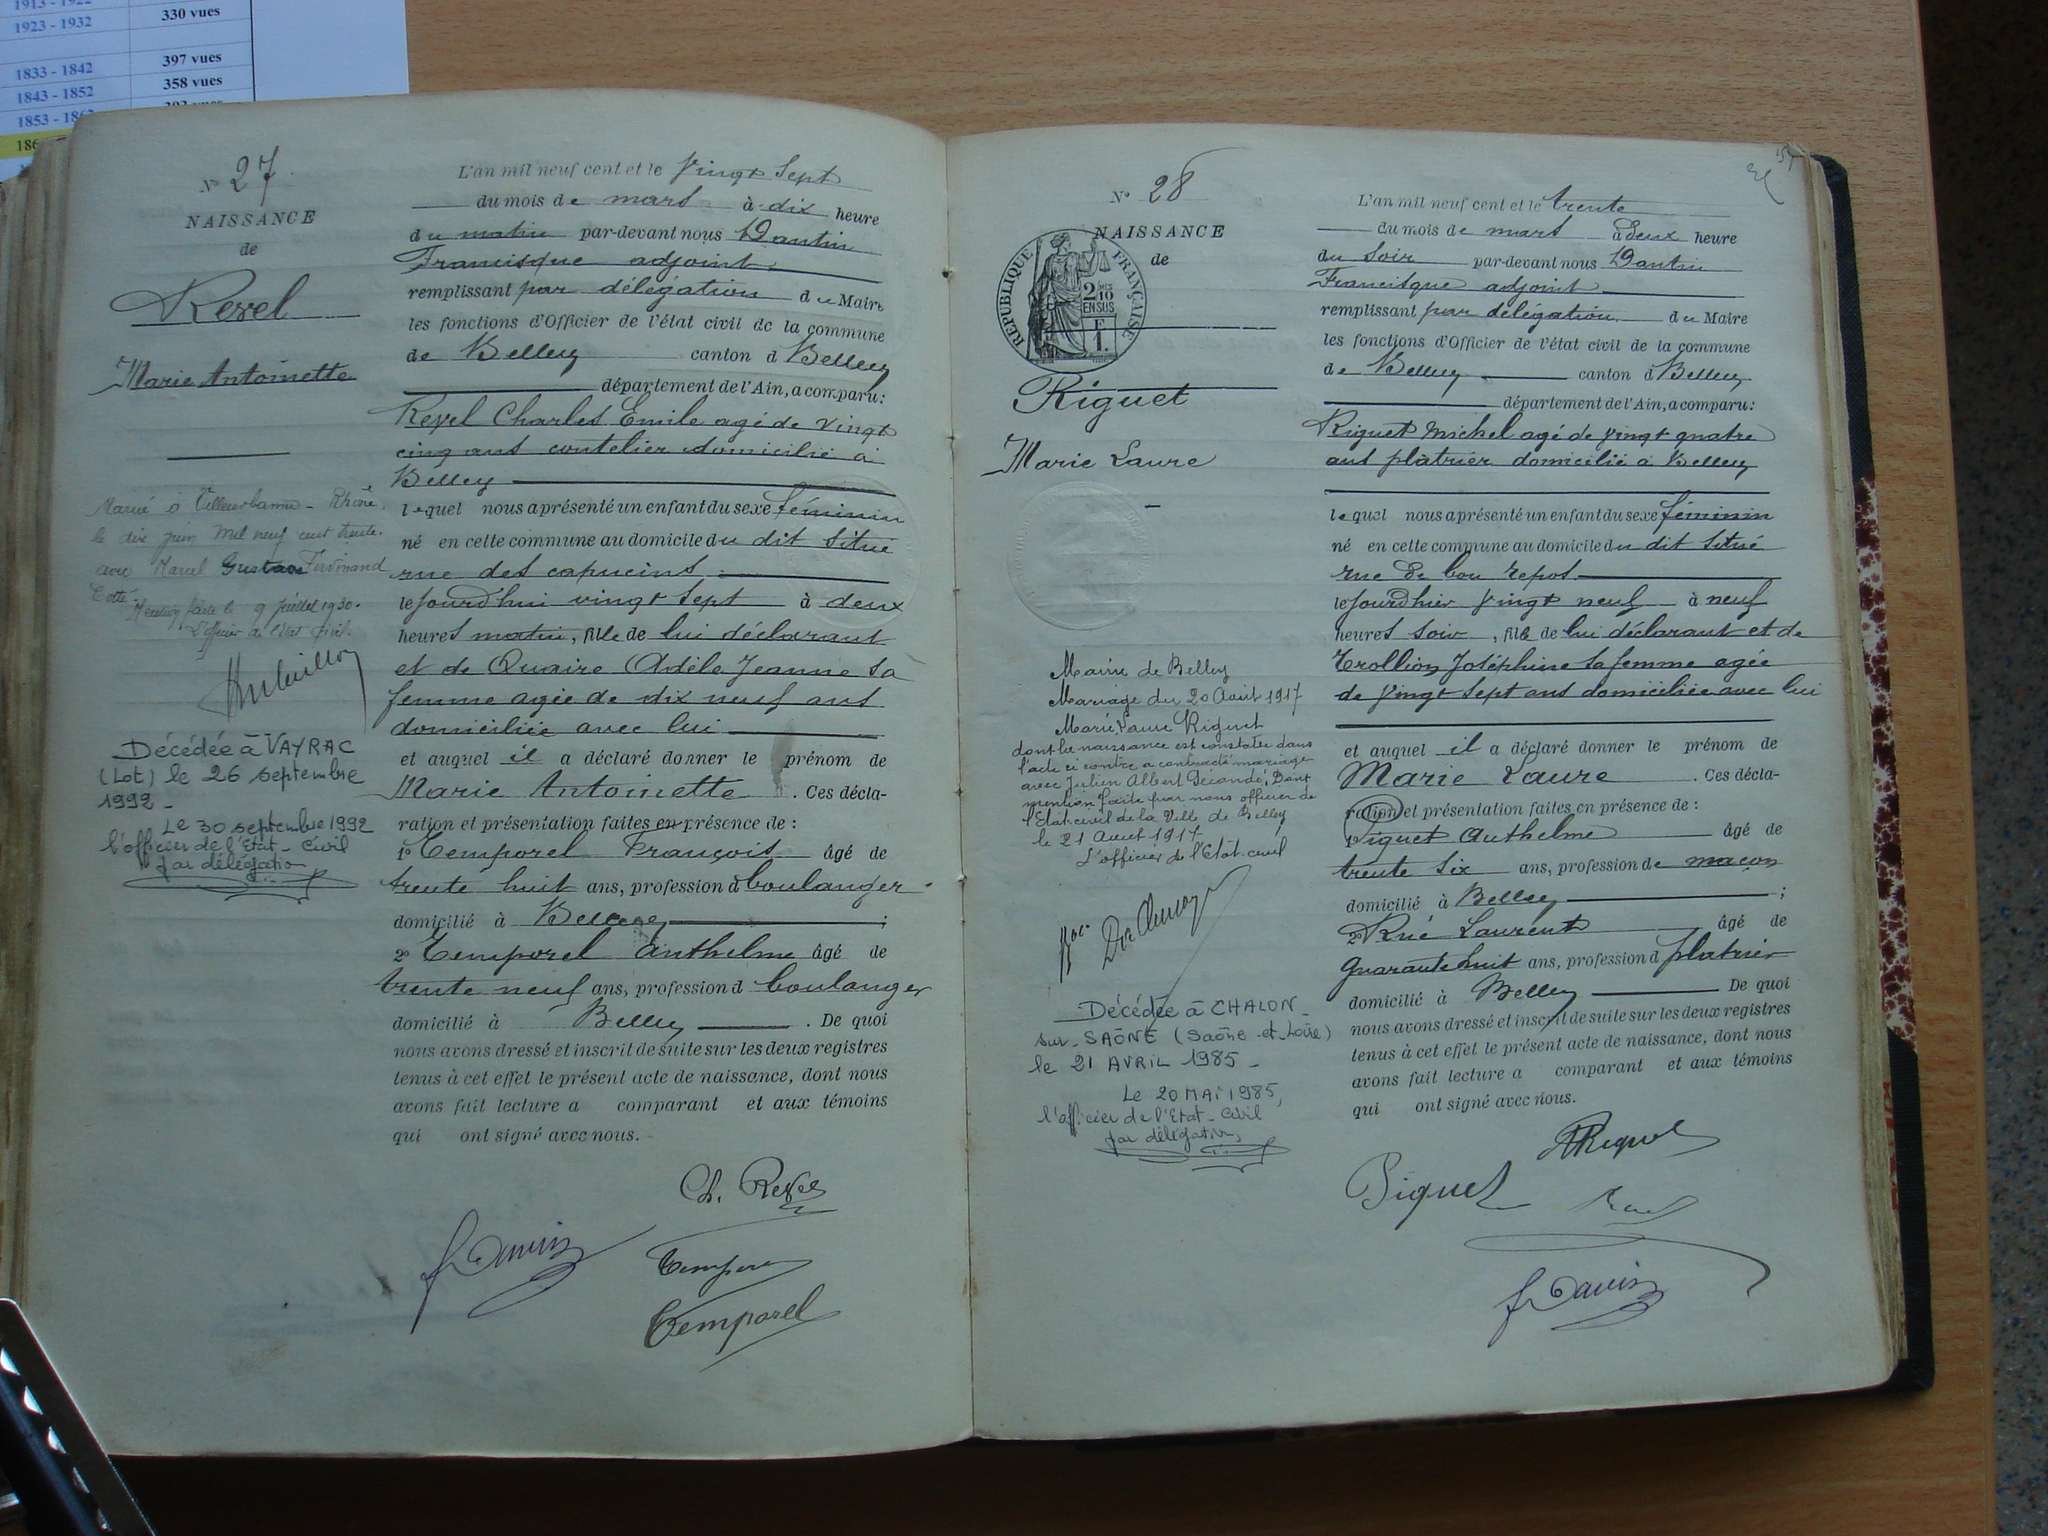 1913 - 1922
1923 - 1932 330 vues
397 vues
1833 - 1842 358 vues
1843 - 1852
1853 - 186
186
N° 27
NAISSANCE
de
Revel
Marie Antoinette
Marié à Villeurbanne - Rhône,
le dix juin mil neuf cent trente.
avec Marcel Gustave Ferdinand
Mention faite le 9 juillet 1930.
L'officier de l'état civil.
Décédée à VAYRAC
(Lot) le 26 septembre
1992 -
Le 30 septembre 1992
l'officier de l'Etat-Civil
par délégation
L'an mil neuf cent et le vingt sept
du mois de mars à dix heure
du matin par-devant nous Dantin
Francisque adjoint
remplissant par délégation du Maire
les fonctions d'Officier de l'état civil de la commune
de Belley canton d Belley
département de l'Ain, a comparu:
Revel Charles Emile agé de vingt
cinq ans coutelier domicilié à
Belley
lequel nous a présenté un enfant du sexe féminin
né en cette commune au domicile du dit situé
rue des capucins
le jourd'hui vingt sept à deux
heures matin, fille de lui déclarant
et de Quaire Adèle Jeanne sa
femme agée de dix neuf ans
domiciliée avec lui
et auquel il a déclaré donner le prénom de
Marie Antoinette . Ces décla-
ration et présentation faites en présence de :
1° Temporel François âgé de
trente huit ans, profession d boulanger
domicilié à Belley ;
2° Temporel Anthelme âgé de
trente neuf ans, profession d boulanger
domicilié à Belley . De quoi
nous avons dressé et inscrit de suite sur les deux registres
tenus à cet effet le présent acte de naissance, dont nous
avons fait lecture a comparant et aux témoins
qui ont signé avec nous.
Ch. Revel
Temporel
N° 28
NAISSANCE
de
REPUBLIQUE FRANÇAISE
2 10
EN SUS
F
1.
Riguet
Marie Laure
Mairie de Belley
Mariage du 20 Août 1917
Marie Laure Riguet
dont la naissance est constatée dans
l'acte ci contre a contracté mariage
avec Julien Albert Dont
mention faite par nous officier de
l'Etat civil de la Ville de Belley
le 21 Aout 1917
L'officier de l'Etat-civil
Décédée à CHALON-
sur-SAÔNE (Saône-et-Loire)
le 21 AVRIL 1985 -
Le 20 MAI 1985,
l'officier de l'Etat-Civil
par délégation,
L'an mil neuf cent et le trente
du mois de mars à deux heure
du soir par-devant nous Dantin
Francisque adjoint
remplissant par délégation du Maire
les fonctions d'Officier de l'état civil de la commune
de Belley canton d Belley
département de l'Ain, a comparu:
Riguet Michel agé de vingt quatre
ans plâtrier domicilié à Belley
lequel nous a présenté un enfant du sexe féminin
né en cette commune au domicile du dit situé
rue de bon repos
le jourd'hier vingt neuf à neuf
heures soir, fille de lui déclarant et de
Trollion Joséphine sa femme agée
de vingt sept ans domiciliée avec lui
et auquel il a déclaré donner le prénom de
Marie Laure . Ces décla-
ration et présentation faites en présence de :
1° Anthelme âgé de
trente six ans, profession de maçon
domicilié à Belley ;
2° Rué Laurent âgé de
quarante huit ans, profession d platrier
domicilié à Belley De quoi
nous avons dressé et inscrit de suite sur les deux registres
tenus à cet effet le présent acte de naissance, dont nous
avons fait lecture a comparant et aux témoins
qui ont signé avec nous.